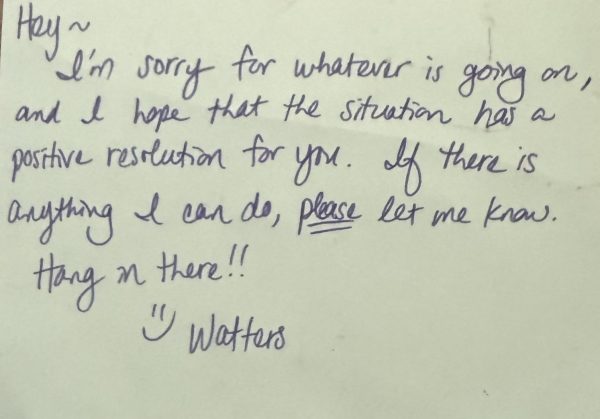 Hey~
I'm sorry for whatever is going on,
and I hope that the situation has a
positive resolution for you. If there is
anything I can do, please let me know.
Hang in there!!
Watters